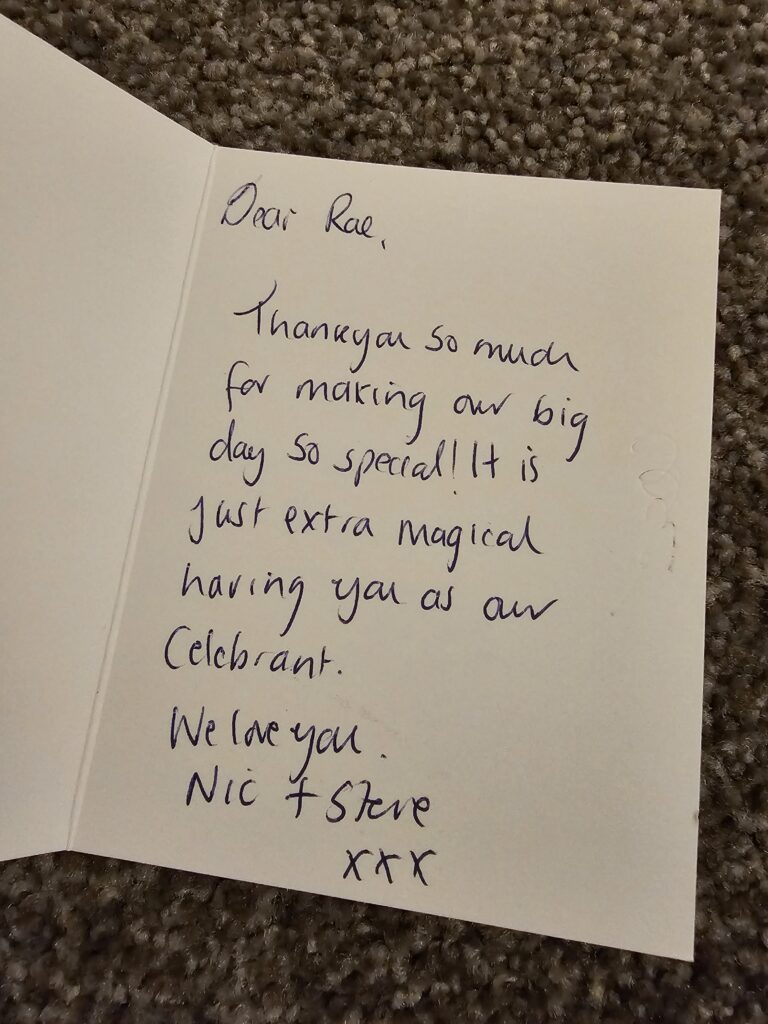 Dear Rae,
Thankyou so much
for making our big
day so special! It is
just extra magical
having you as our
Celebrant.
We love you.
Nic + Steve
xxx